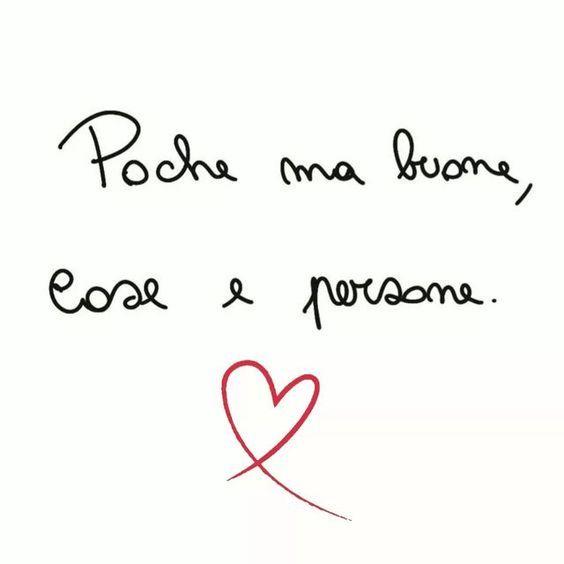 Poche ma buone,
cose e persone.